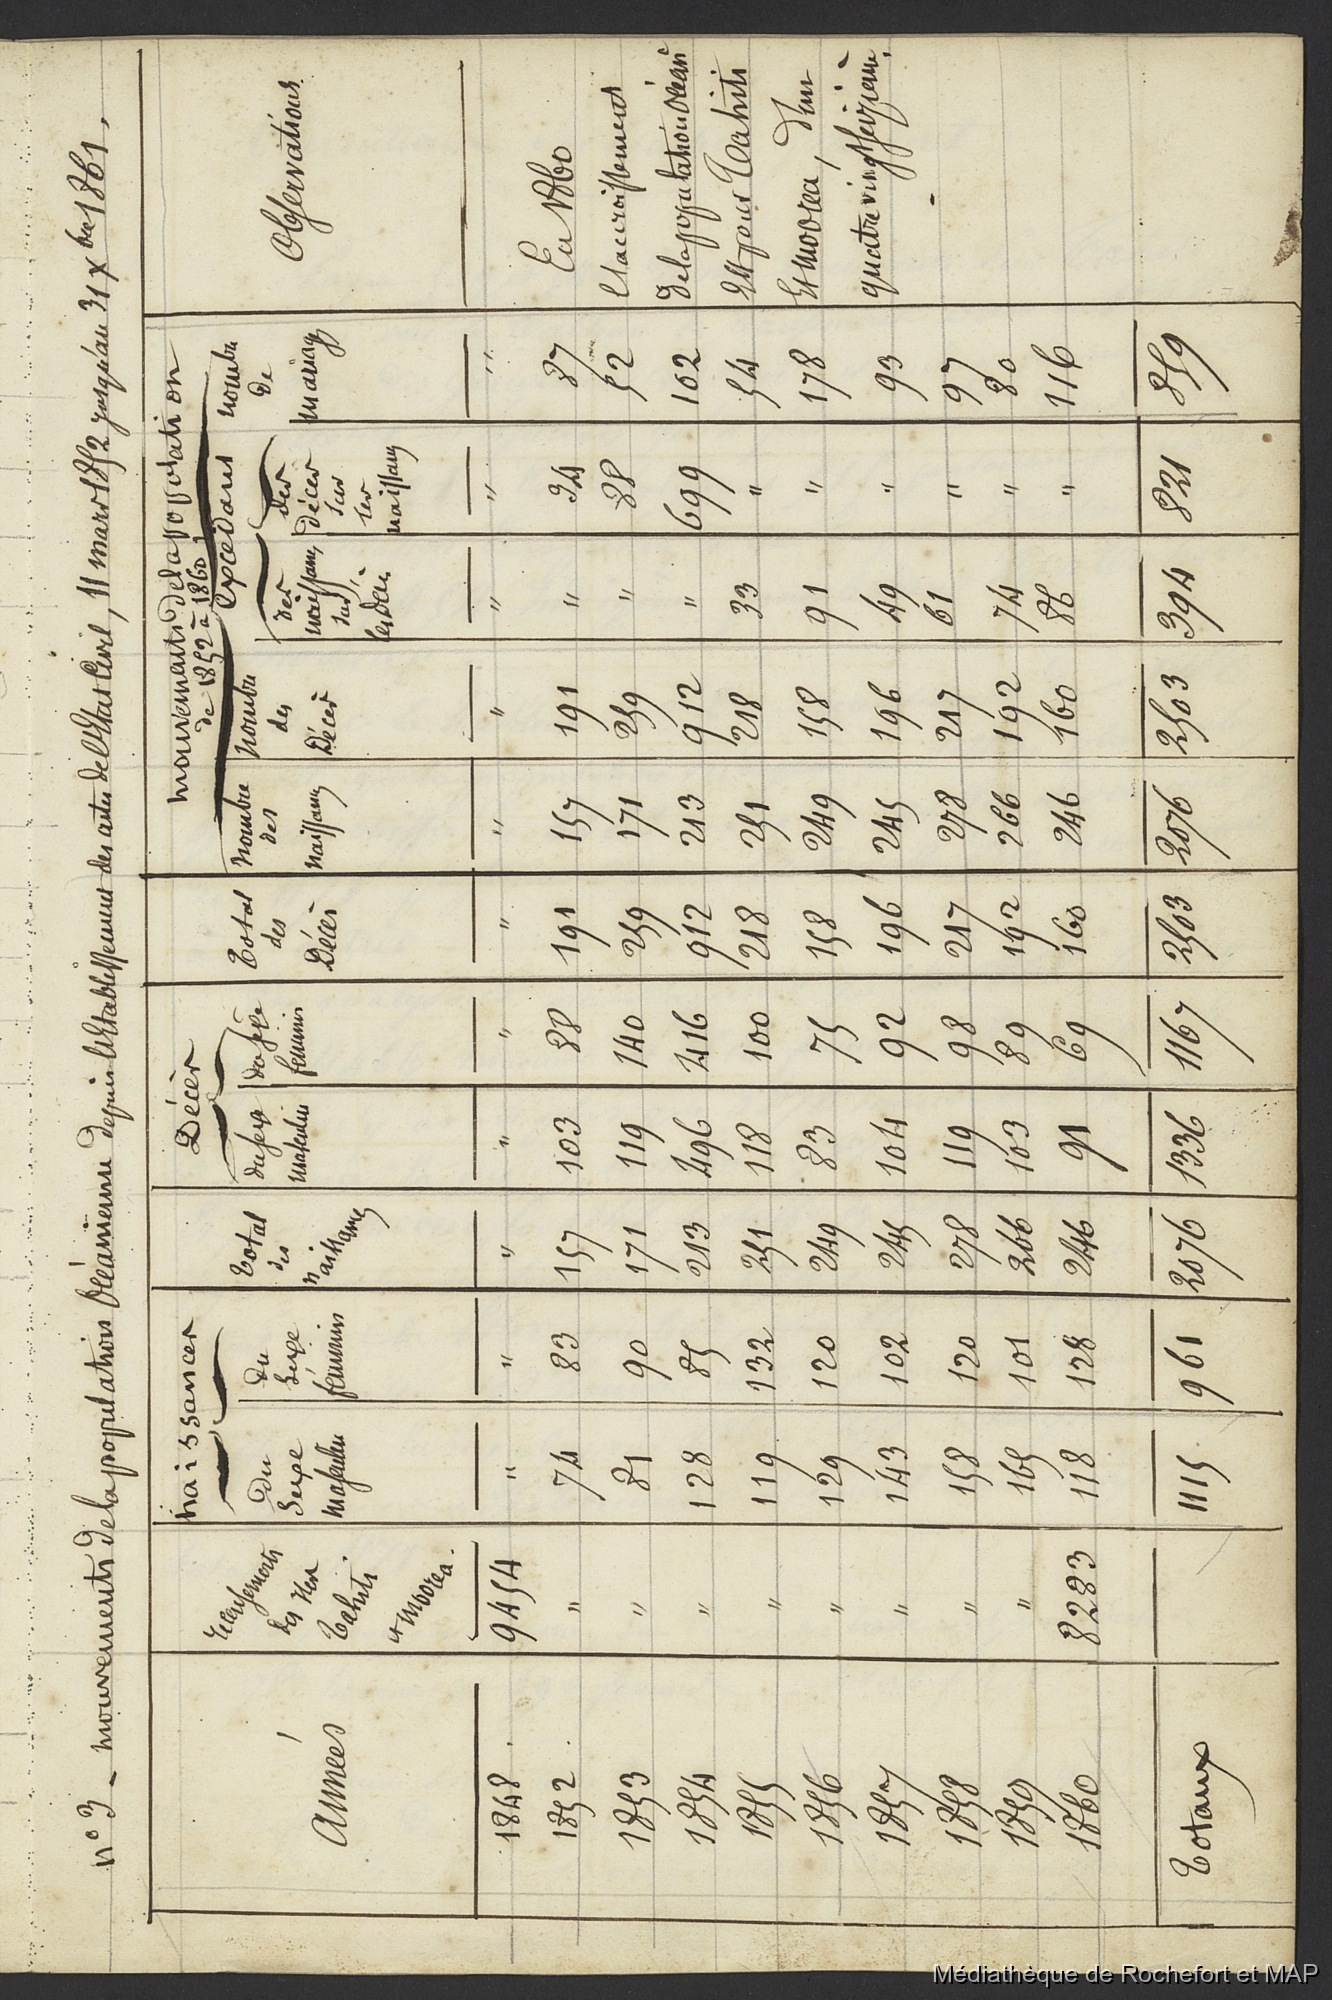 n° 3 – mouvements de la population Océanienne depuis l'Etablissement des actes de l'Etat Civil, 11 mars 1852 jusqu'au 31 Xbre 1861.
Années
Recensements des Iles Tahiti et Moorea.
naissances
Du Sexe masculin
Du Sexe féminin
Total des naissances
Décès
du sexe masculin
du sexe féminin
Total des Décès
mouvements de la population de 1852 à 1860
nombre des naissances
nombre des Décès
excédans
des naissances sur les décès
des décès sur les naissances
nombre de mariages
Observations
1848. 9454 " " " " " " " " " " "
1852. " 74 83 157 103 88 191 157 191 " 34 87
1853 " 81 90 171 119 140 259 171 259 " 88 52
1854 " 128 85 213 496 416 912 213 912 " 699 102
1855 " 119 132 251 118 100 218 251 218 33 " 54
1856 " 129 120 249 83 75 158 249 158 91 " 178
1857 " 143 102 245 104 92 196 245 196 49 " 93
1858 " 158 120 278 119 98 217 278 217 61 " 97
1859 " 165 101 266 103 89 192 266 192 74 " 80
1860 8283 118 128 246 91 69 160 246 160 86 " 116
Totaux 1115 961 2076 1336 1167 2503 2076 2503 394 821 859
En 1860
l'accroissement
de la population Océan
est pour Tahiti
et Moorea, d'un
quatre vingt seizième.
Médiathèque de Rochefort et MAP